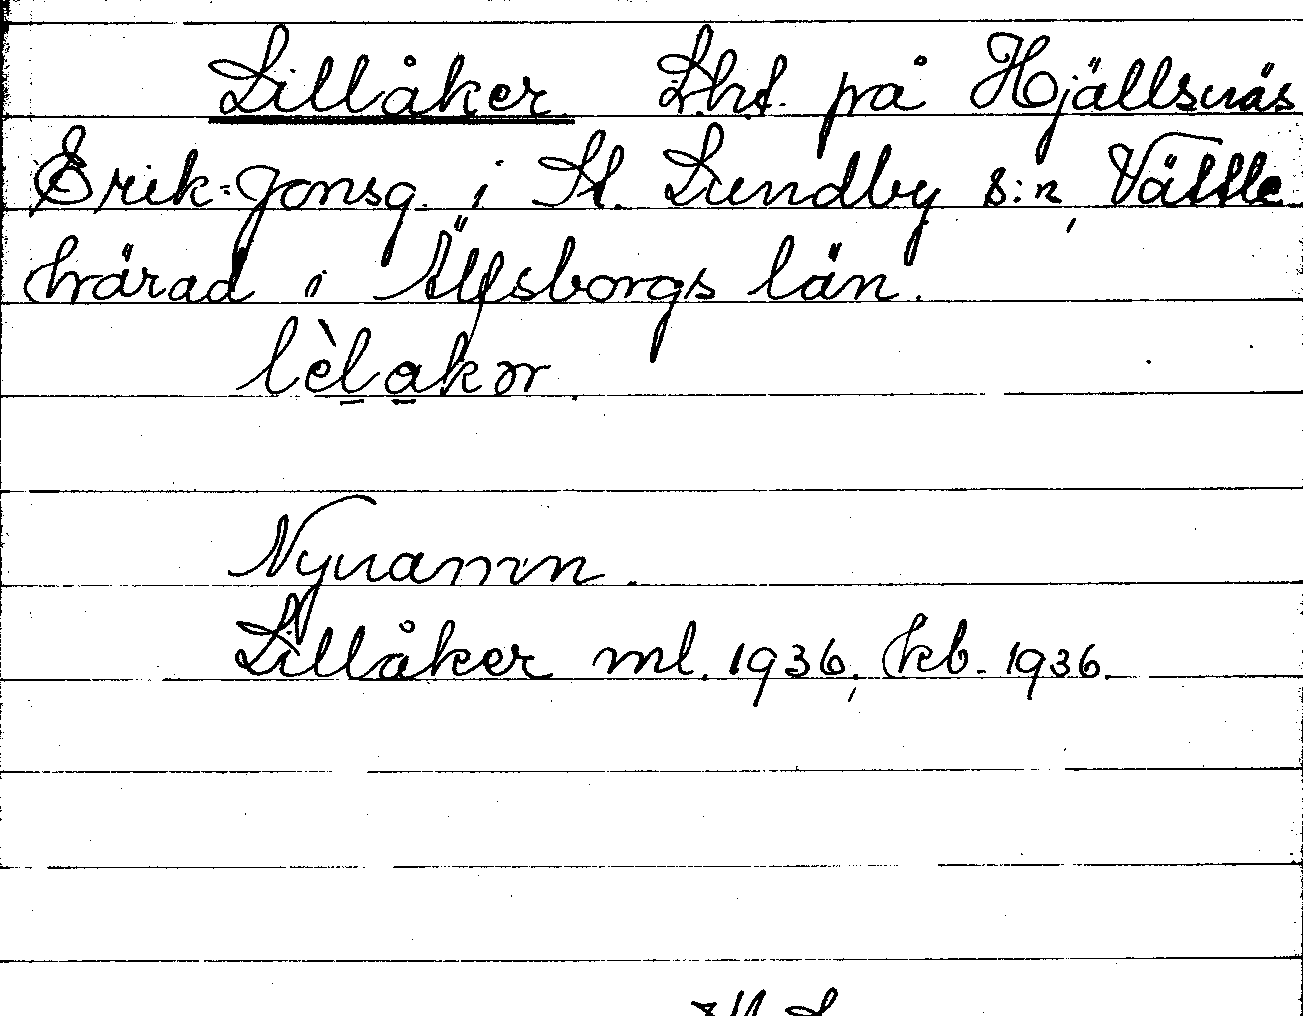 Lillåker Lht. på Hjällsnäs
Erik-Jonsg. i St. Lundby s:n, Vättle
härad i Älfsborgs län.
lèlakər.
Nynamn.
Lillåker ml. 1936, kb. 1936.